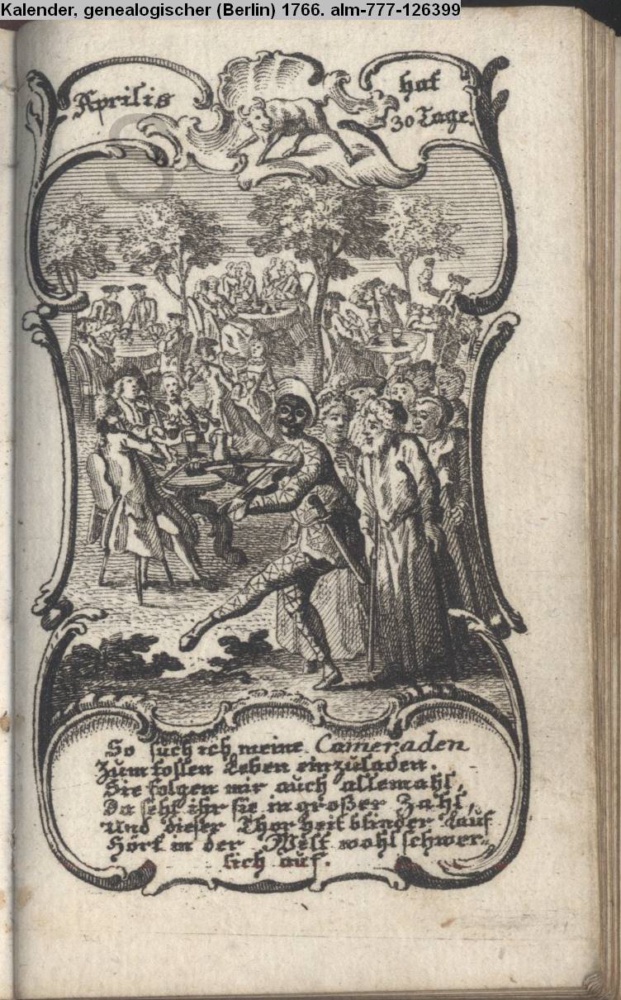 Kalender, genealogischer (Berlin) 1766. alm-777-126399
Aprilis
hat
30 Tage.
So such ich meine Cameraden
Zum tollen Leben einzuladen.
Sie folgen mir auch allemahl,
Da seht ihr sie in großer Zahl,
Und dieser Thorheit blinder Lauf
Hört in der Welt wohl schwer-
lich auf.